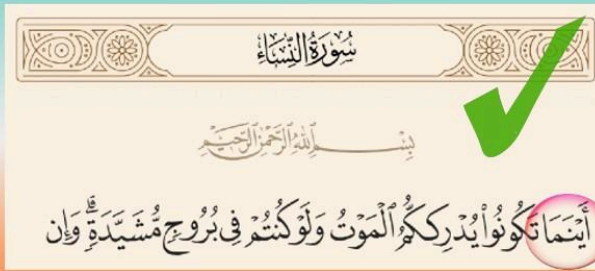 سُورَةُ النِّسَاءِ
بِسْمِ اللَّهِ الرَّحْمَٰنِ الرَّحِيمِ
أَيْنَمَا تَكُونُوا۟ يُدْرِككُّمُ ٱلْمَوْتُ وَلَوْ كُنتُمْ فِى بُرُوجٍ مُّشَيَّدَةٍۗ وَإِن